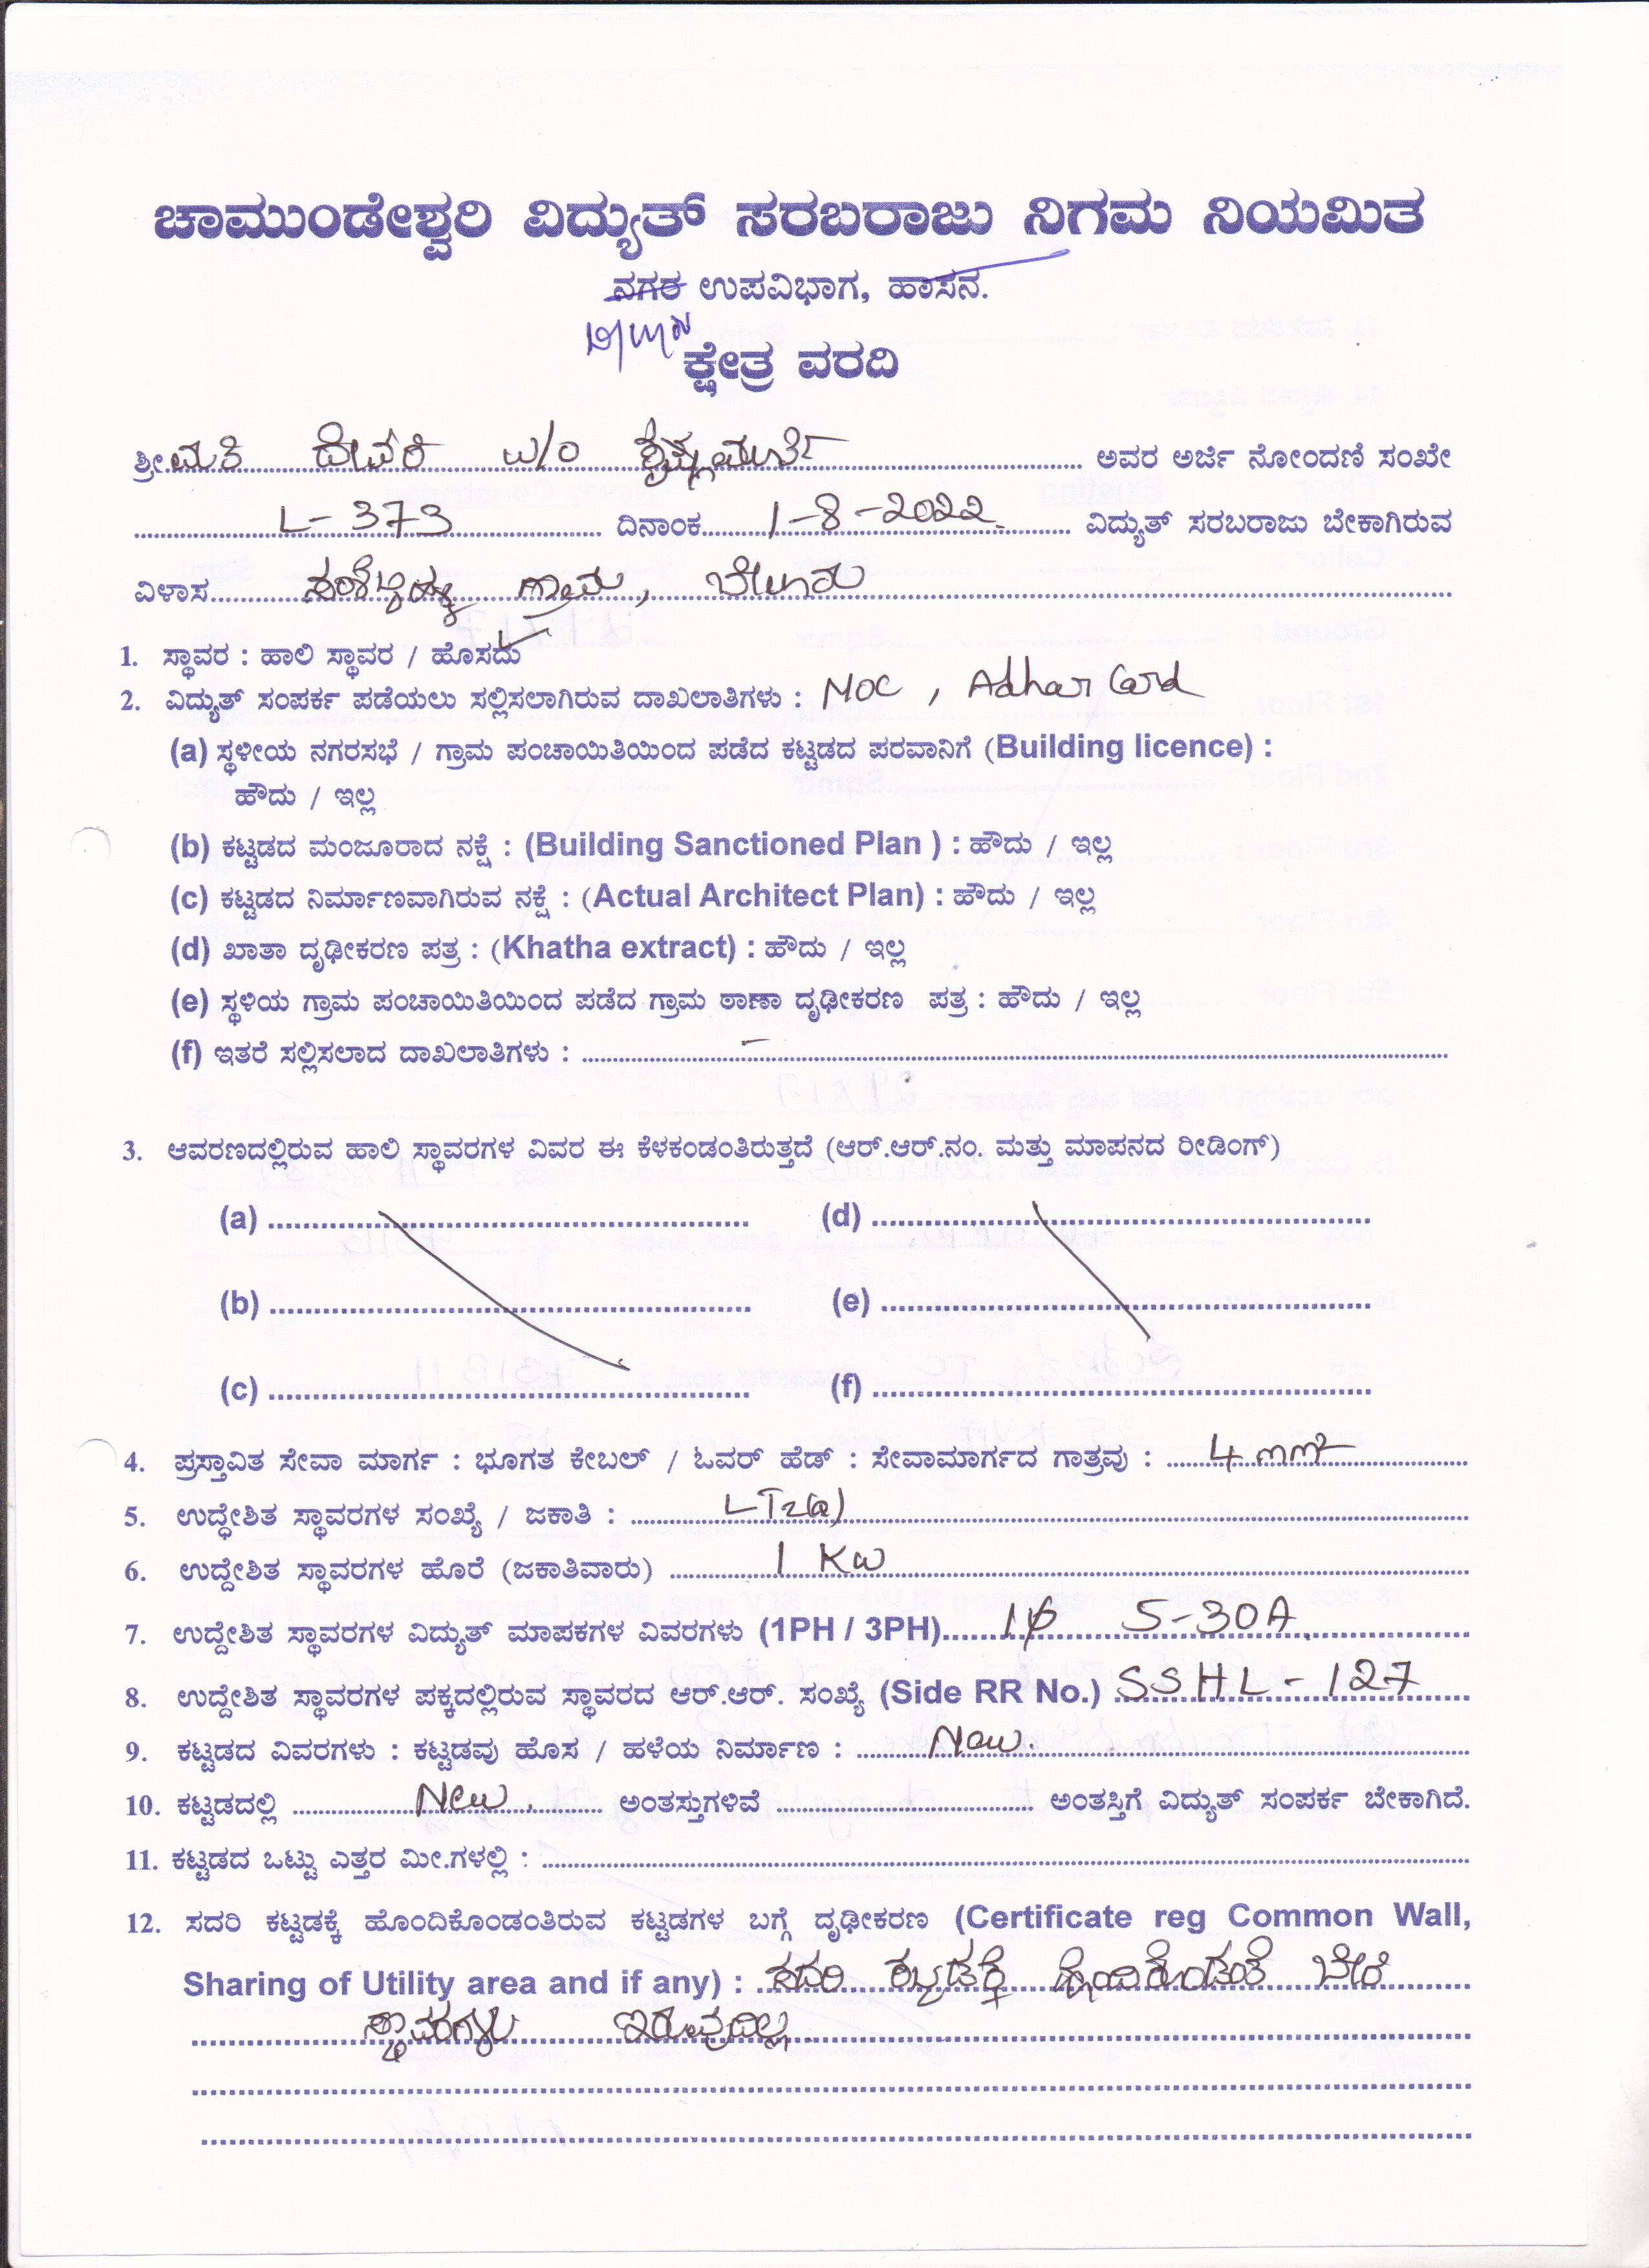 ಚಾಮುಂಡೇಶ್ವರಿ ವಿದ್ಯುತ್ ಸರಬರಾಜು ನಿಗಮ ನಿಯಮಿತ
ನಗರ ಉಪವಿಭಾಗ, ಹಾಸನ.
ಕ್ಷೇತ್ರ ವರದಿ
ಶ್ರೀಮತಿ ದೇವಕಿ w/o ಕೃಷ್ಣಮೂರ್ತಿ ಅವರ ಅರ್ಜಿ ನೋಂದಣಿ ಸಂಖೇ
L-373 ದಿನಾಂಕ 1-8-2022 ವಿದ್ಯುತ್ ಸರಬರಾಜು ಬೇಕಾಗಿರುವ
ವಿಳಾಸ ಗ್ರಾಮ, ಬೇಲೂರು
1. ಸ್ಥಾವರ : ಹಾಲಿ ಸ್ಥಾವರ / ಹೊಸದು ✓
2. ವಿದ್ಯುತ್ ಸಂಪರ್ಕ ಪಡೆಯಲು ಸಲ್ಲಿಸಲಾಗಿರುವ ದಾಖಲಾತಿಗಳು : NOC, Adhar Card
(a) ಸ್ಥಳೀಯ ನಗರಸಭೆ / ಗ್ರಾಮ ಪಂಚಾಯಿತಿಯಿಂದ ಪಡೆದ ಕಟ್ಟಡದ ಪರವಾನಿಗೆ (Building licence) :
ಹೌದು / ಇಲ್ಲ
(b) ಕಟ್ಟಡದ ಮಂಜೂರಾದ ನಕ್ಷೆ : (Building Sanctioned Plan ) : ಹೌದು / ಇಲ್ಲ
(c) ಕಟ್ಟಡದ ನಿರ್ಮಾಣವಾಗಿರುವ ನಕ್ಷೆ : (Actual Architect Plan) : ಹೌದು / ಇಲ್ಲ
(d) ಖಾತಾ ದೃಢೀಕರಣ ಪತ್ರ : (Khatha extract) : ಹೌದು / ಇಲ್ಲ
(e) ಸ್ಥಳಿಯ ಗ್ರಾಮ ಪಂಚಾಯಿತಿಯಿಂದ ಪಡೆದ ಗ್ರಾಮ ಠಾಣಾ ದೃಢೀಕರಣ ಪತ್ರ : ಹೌದು / ಇಲ್ಲ
(f) ಇತರೆ ಸಲ್ಲಿಸಲಾದ ದಾಖಲಾತಿಗಳು : -
3. ಆವರಣದಲ್ಲಿರುವ ಹಾಲಿ ಸ್ಥಾವರಗಳ ವಿವರ ಈ ಕೆಳಕಂಡಂತಿರುತ್ತದೆ (ಆರ್.ಆರ್.ನಂ. ಮತ್ತು ಮಾಪನದ ರೀಡಿಂಗ್)
(a) (d)
(b) (e)
(c) (f)
4. ಪ್ರಸ್ತಾವಿತ ಸೇವಾ ಮಾರ್ಗ : ಭೂಗತ ಕೇಬಲ್ / ಓವರ್ ಹೆಡ್ : ಸೇವಾಮಾರ್ಗದ ಗಾತ್ರವು : 4 mm²
5. ಉದ್ಧೇಶಿತ ಸ್ಥಾವರಗಳ ಸಂಖ್ಯೆ / ಜಕಾತಿ : LT2(a)
6. ಉದ್ದೇಶಿತ ಸ್ಥಾವರಗಳ ಹೊರೆ (ಜಕಾತಿವಾರು) 1 Kw
7. ಉದ್ದೇಶಿತ ಸ್ಥಾವರಗಳ ವಿದ್ಯುತ್ ಮಾಪಕಗಳ ವಿವರಗಳು (1PH / 3PH) 1φ 5-30A.
8. ಉದ್ದೇಶಿತ ಸ್ಥಾವರಗಳ ಪಕ್ಕದಲ್ಲಿರುವ ಸ್ಥಾವರದ ಆರ್.ಆರ್. ಸಂಖ್ಯೆ (Side RR No.) SSHL-127
9. ಕಟ್ಟಡದ ವಿವರಗಳು : ಕಟ್ಟಡವು ಹೊಸ / ಹಳೆಯ ನಿರ್ಮಾಣ : New.
10. ಕಟ್ಟಡದಲ್ಲಿ New. ಅಂತಸ್ತುಗಳಿವೆ ಅಂತಸ್ತಿಗೆ ವಿದ್ಯುತ್ ಸಂಪರ್ಕ ಬೇಕಾಗಿದೆ.
11. ಕಟ್ಟಡದ ಒಟ್ಟು ಎತ್ತರ ಮೀ.ಗಳಲ್ಲಿ :
12. ಸದರಿ ಕಟ್ಟಡಕ್ಕೆ ಹೊಂದಿಕೊಂಡಂತಿರುವ ಕಟ್ಟಡಗಳ ಬಗ್ಗೆ ದೃಢೀಕರಣ (Certificate reg Common Wall,
Sharing of Utility area and if any) : ಸದರಿ ಕಟ್ಟಡಕ್ಕೆ ಹೊಂದಿಕೊಂಡಂತೆ ಬೇರೆ
ಸ್ಥಾವರಗಳು ಇರುವುದಿಲ್ಲ